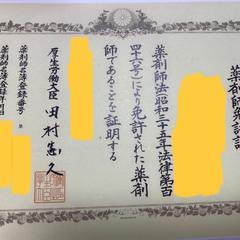 薬剤師免許証
薬剤師法(昭和三十五年法律第百
四十六号)により免許された薬剤
師であることを証明する
厚生労働大臣 田村憲久
薬剤師名簿登録番号 第
薬剤師名簿登録年月日